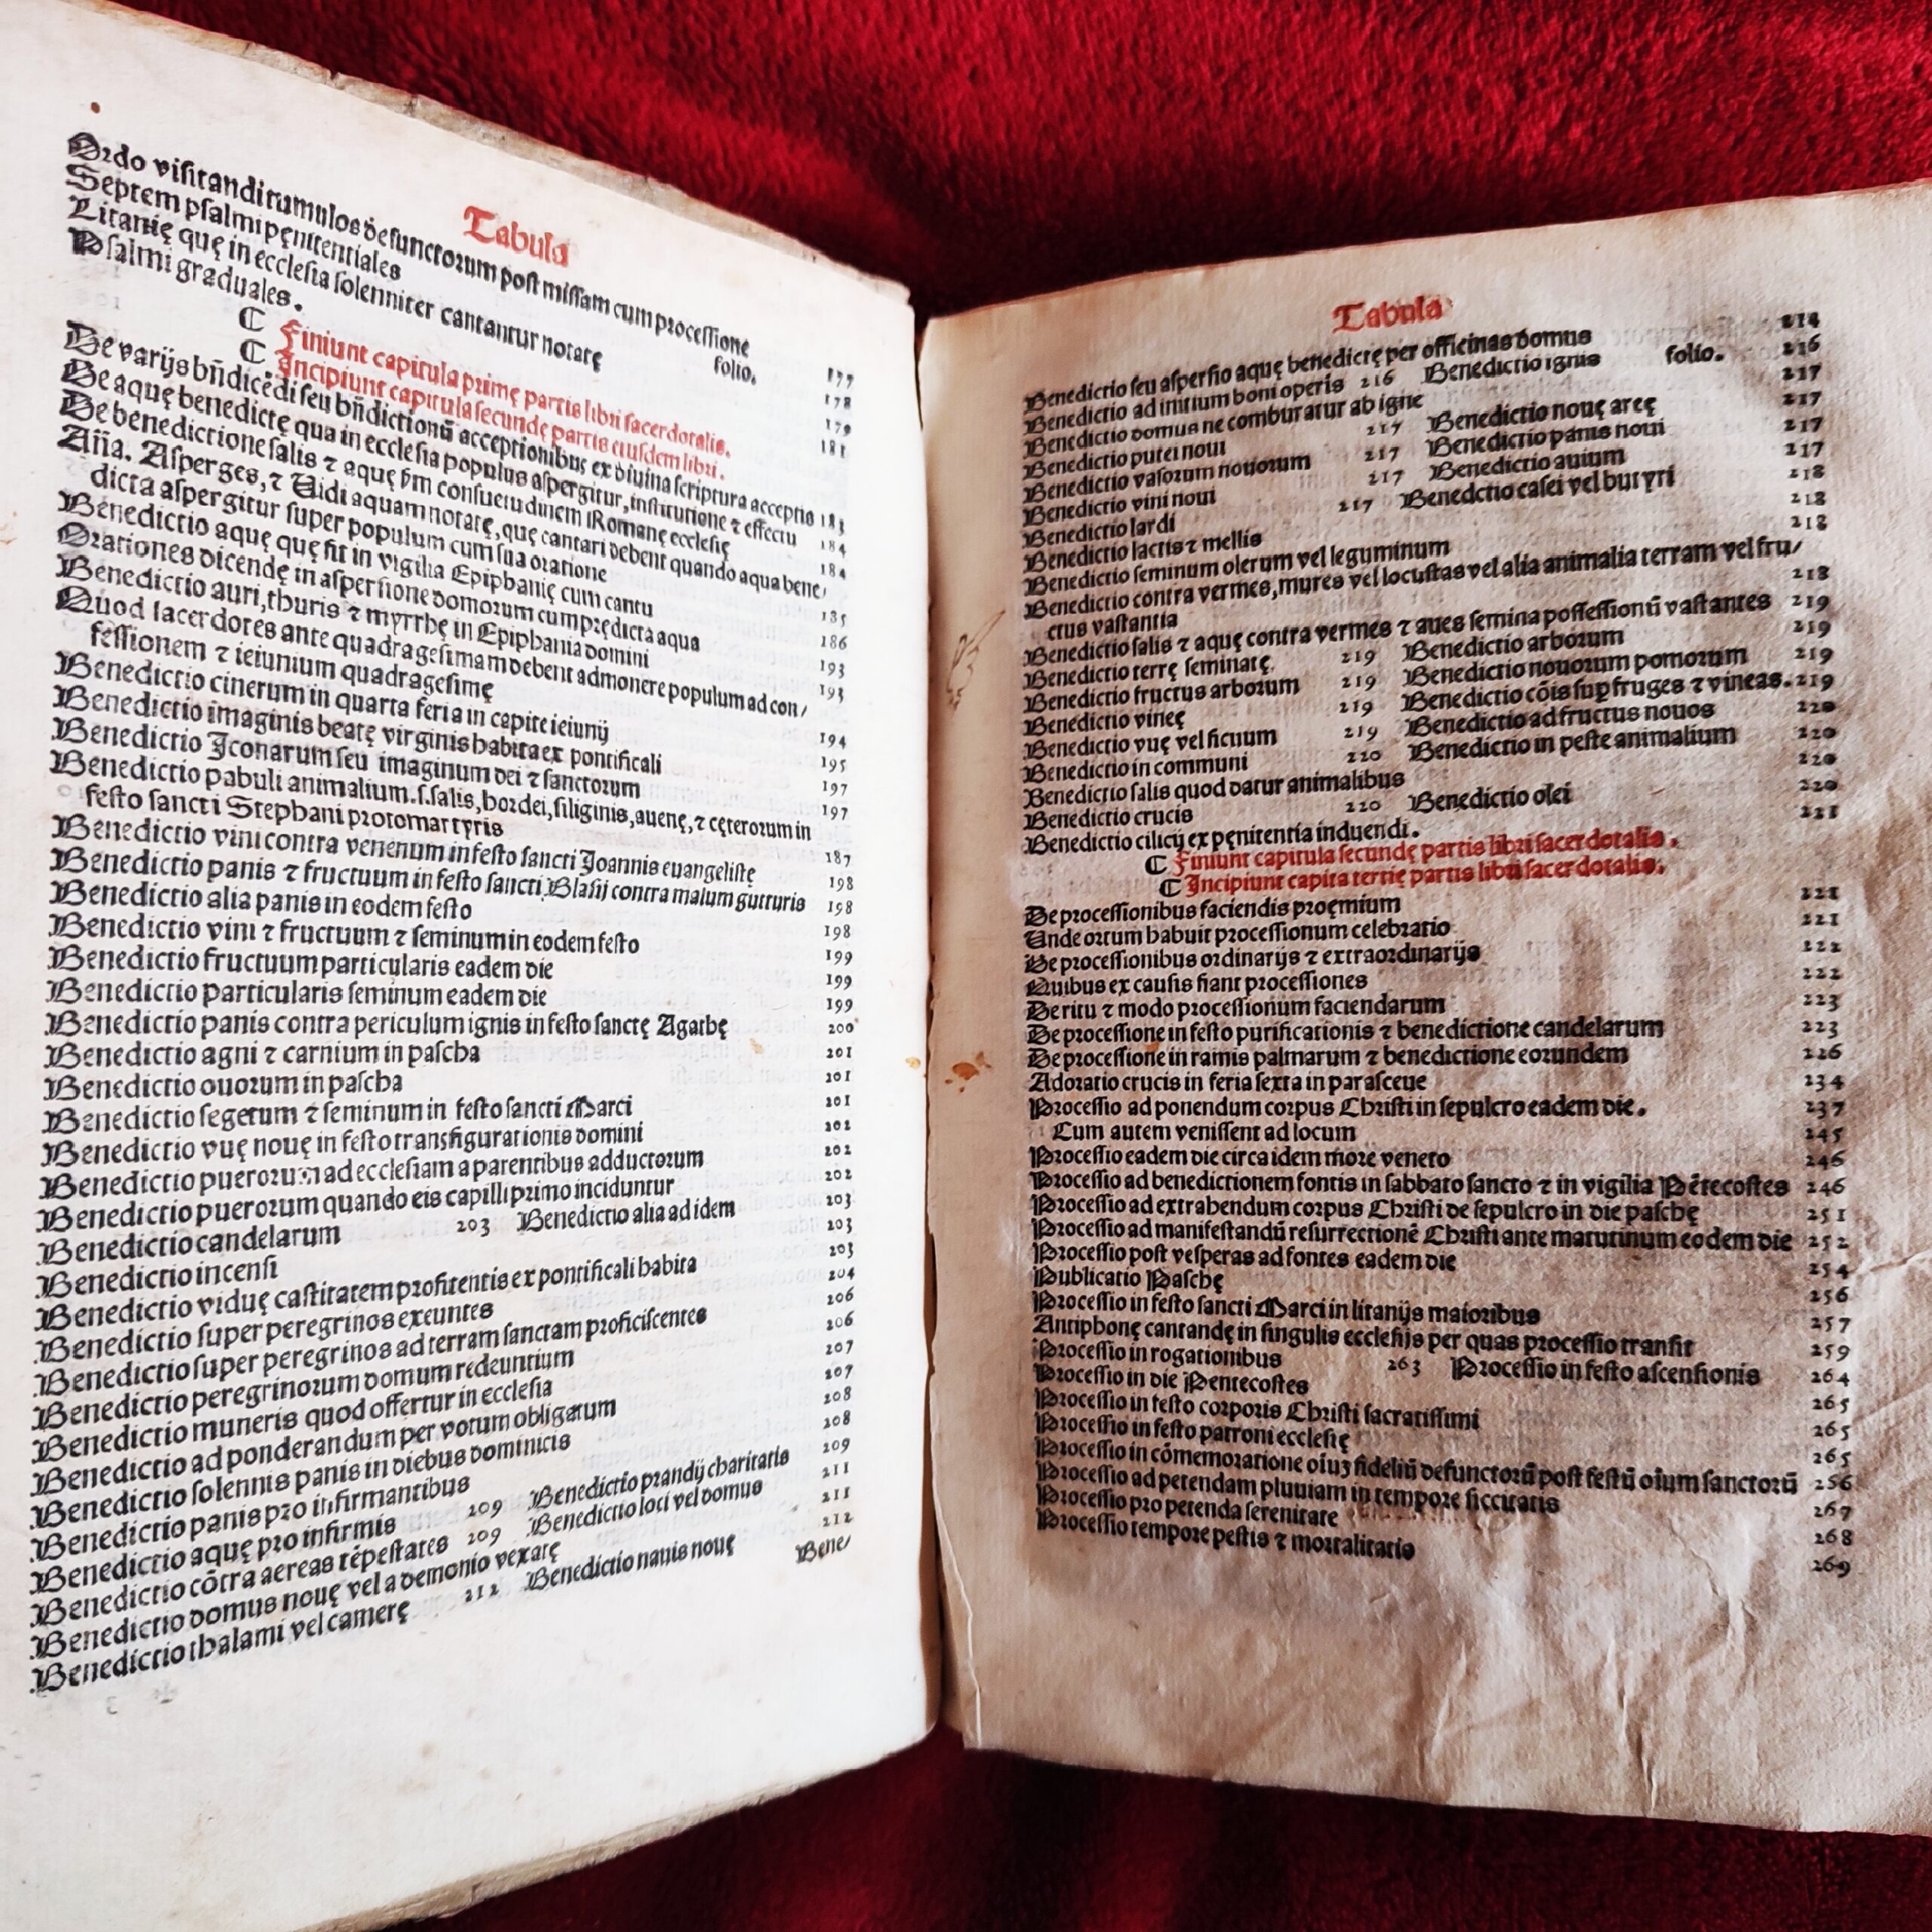 Tabula
Ordo visitandi tumulos defunctorum post missam cum processione 177
Septem psalmi pęnitentiales folio. 178
Litanię quę in ecclesia solenniter cantantur notatę 179
Psalmi graduales. 181
¶ Finiunt capitula primę partis libri sacerdotalis.
¶ Incipiunt capitula secundę partis eiusdem libri.
De varijs bñdicēdi seu bñdictionū acceptionibus ex divina scriptura acceptio 183
De aquę benedictę qua in ecclesia populus aspergitur, institutione ⁊ effectu 184
De benedictione salis ⁊ aquę ẜm consuetudinem Romanę ecclesię 184
Añа. Asperges, ⁊ Uidi aquam notatę, que cantari debent quando aqua bene/
dicta aspergitur super populum cum sua oratione 185
Benedictio aquę quę fit in vigilia Epiphanię cum cantu 186
Orationes dicendę in aspersione domorum cum prędicta aqua 193
Benedictio auri, thuris ⁊ myrrhę in Epiphania domini 193
Quod sacerdotes ante quadragesimam debent admonere populum ad con/
fessionem ⁊ ieiunium quadragesimę 194
Benedictio cinerum in quarta feria in capite ieiunij 195
Benedictio imaginis beatę virginis habita ex pontificali 197
Benedictio Iconarum seu imaginum dei ⁊ sanctorum 197
Benedictio pabuli animalium.s.salis, hordei, siliginis, auenę, ⁊ cęterorum in
festo sancti Stephani protomartyris 187
Benedictio vini contra venenum in festo sancti Joannis euangelistę 198
Benedictio panis ⁊ fructuum in festo sancti Blasij contra malum gutturis 198
Benedictio alia panis in eodem festo 198
Benedictio vini ⁊ fructuum ⁊ seminum in eodem festo 199
Benedictio fructuum particularis eadem die 199
Benedictio particularis seminum eadem die 199
Benedictio panis contra periculum ignis in festo sanctę Agathę 200
Benedictio agni ⁊ carnium in pascha 201
Benedictio ouorum in pascha 201
Benedictio segetum ⁊ seminum in festo sancti Marci 201
Benedictio vuę nouę in festo transfigurationis domini 202
Benedictio puerorum ad ecclesiam a parentibus adductorum 202
Benedictio puerorum quando eis capilli primo inciduntur 202
Benedictio candelarum 203 Benedictio alia ad idem 203
Benedictio incensi 203
Benedictio viduę castitatem profitentis ex pontificali habita 203
Benedictio super peregrinos exeuntes 204
Benedictio super peregrinos ad terram sanctam proficiscentes 206
Benedictio peregrinorum domum redeuntium 206
Benedictio muneris quod offertur in ecclesia 207
Benedictio ad ponderandum per votum obligatum 207
Benedictio solennis panis in diebus dominicis 208
Benedictio panis pro infirmantibus 208
Benedictio aquę pro infirmis 209 Benedictio prandij charitatis 209
Benedictio cōtra aereas tēpestates 209 Benedictio loci vel domus 211
Benedictio domus nouę vel a demonio vexatę 211
Benedictio thalami vel camerę 212 Benedictio nauis nouę 212
Bene/
Tabula
Benedictio seu aspersio aquę benedictę per officinas domus 214
Benedictio ad initium boni operis 216 Benedictio ignis folio. 216
Benedictio domus ne comburatur ab igne 217
Benedictio putei noui 217 Benedictio nouę areę 217
Benedictio vasorum nouorum 217 Benedictio panis noui 217
Benedictio vini noui 217 Benedictio auium 217
Benedictio lardi 217 Benedctio casei vel butyri 218
Benedictio lactis ⁊ mellis 218
Benedictio seminum olerum vel leguminum 218
Benedictio contra vermes, mures vel locustas vel alia animalia terram vel fru/
ctus vastantia 218
Benedictio salis ⁊ aquę contra vermes ⁊ aues semina possessionū vastantes 219
Benedictio terrę seminatę. 219 Benedictio arborum 219
Benedictio fructus arborum 219 Benedictio nouorum pomorum 219
Benedictio vineę 219 Benedictio cōis sup fruges ⁊ vineas. 219
Benedictio vuę vel ficuum 219 Benedictio ad fructus nouos 220
Benedictio in communi 220 Benedictio in peste animalium 220
Benedictio salis quod datur animalibus 220
Benedictio crucis 220 Benedictio olei 220
Benedictio cilicij ex pęnitentia induendi. 221
¶ Finiunt capitula secundę partis libri sacerdotalis.
¶ Incipiunt capita tertię partis libri sacerdotalis.
De processionibus faciendis proęmium 221
Unde ortum habuit processionum celebratio 221
De processionibus ordinarijs ⁊ extraordinarijs 222
Quibus ex causis fiant processiones 222
De ritu ⁊ modo processionum faciendarum 223
De processione in festo purificationis ⁊ benedictione candelarum 223
De processione in ramis palmarum ⁊ benedictione eorundem 226
Adoratio crucis in feria sexta in parasceue 234
Processio ad ponendum corpus Christi in sepulcro eadem die. 237
Cum autem venissent ad locum 245
Processio eadem die circa idem more veneto 246
Processio ad benedictionem fontis in sabbato sancto ⁊ in vigilia Pētecostes 246
Processio ad extrahendum corpus Christi de sepulcro in die paschę 251
Processio ad manifestandū resurrectionē Christi ante matutinum eodem die 252
Processio post vesperas ad fontes eadem die 254
Publicatio Paschę 256
Processio in festo sancti Marci in litanijs maioribus 257
Antiphonę cantandę in singulis ecclesijs per quas processio transit 259
Processio in rogationibus 263 Processio in festo ascensionis 264
Processio in die Pentecostes 265
Processio in festo corporis Christi sacratissimi 265
Processio in festo patroni ecclesię 265
Processio in cōmemoratione oīuꝫ fideliū defunctorū post festū oīum sanctorū 256
Processio ad petendam pluuiam in tempore siccitatis 267
Processio pro petenda serenitate 268
Processio tempore pestis ⁊ mortalitatis 269